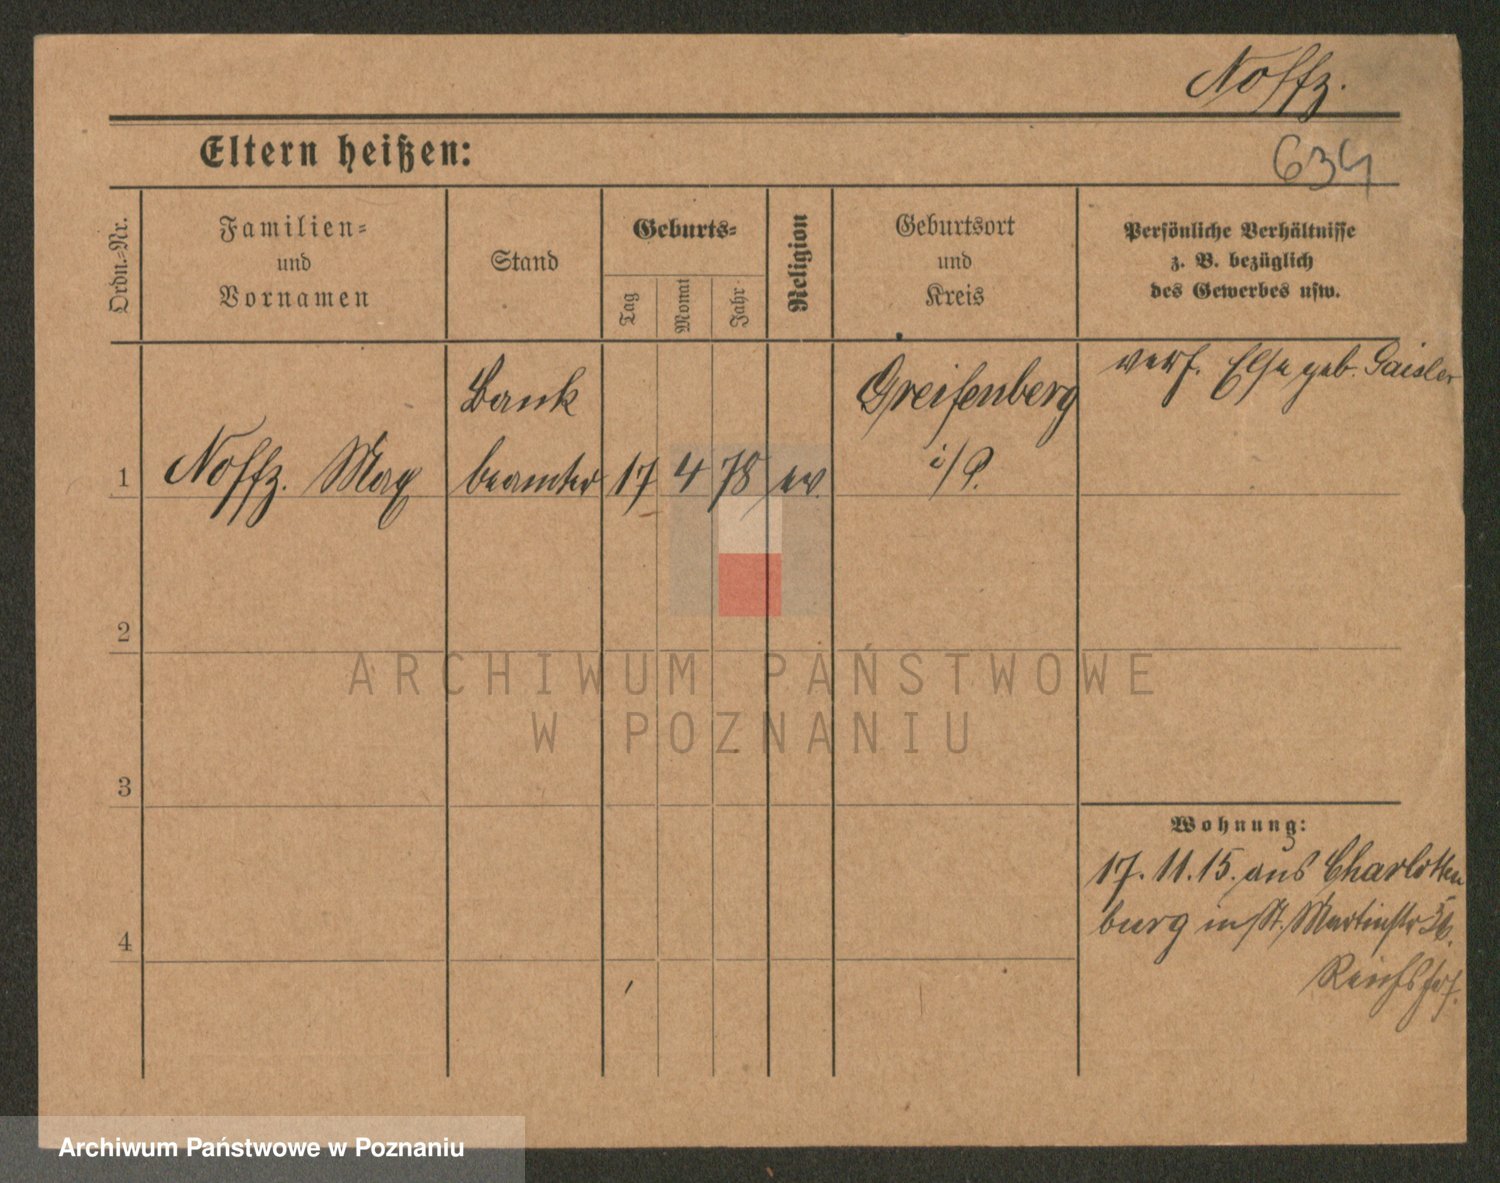 Noffz.
Eltern heißen:
634
Ordn.=Nr.
Familien=
und
Vornamen
Stand
Geburts=
Tag
Monat
Jahr
Religion
Geburtsort
und
Kreis
Persönliche Verhältnisse
z. B. bezüglich
des Gewerbes usw.
1
Noffz. Max
Bank
beamter
17
4
78
ev.
Greifenberg
i/P.
verh. Else geb. Gaisler
2
3
4
Wohnung:
17.11.15. aus Charlotten
burg St. Martinstr
Reichshof.
ARCHIWUM PAŃSTWOWE
W POZNANIU
Archiwum Państwowe w Poznaniu